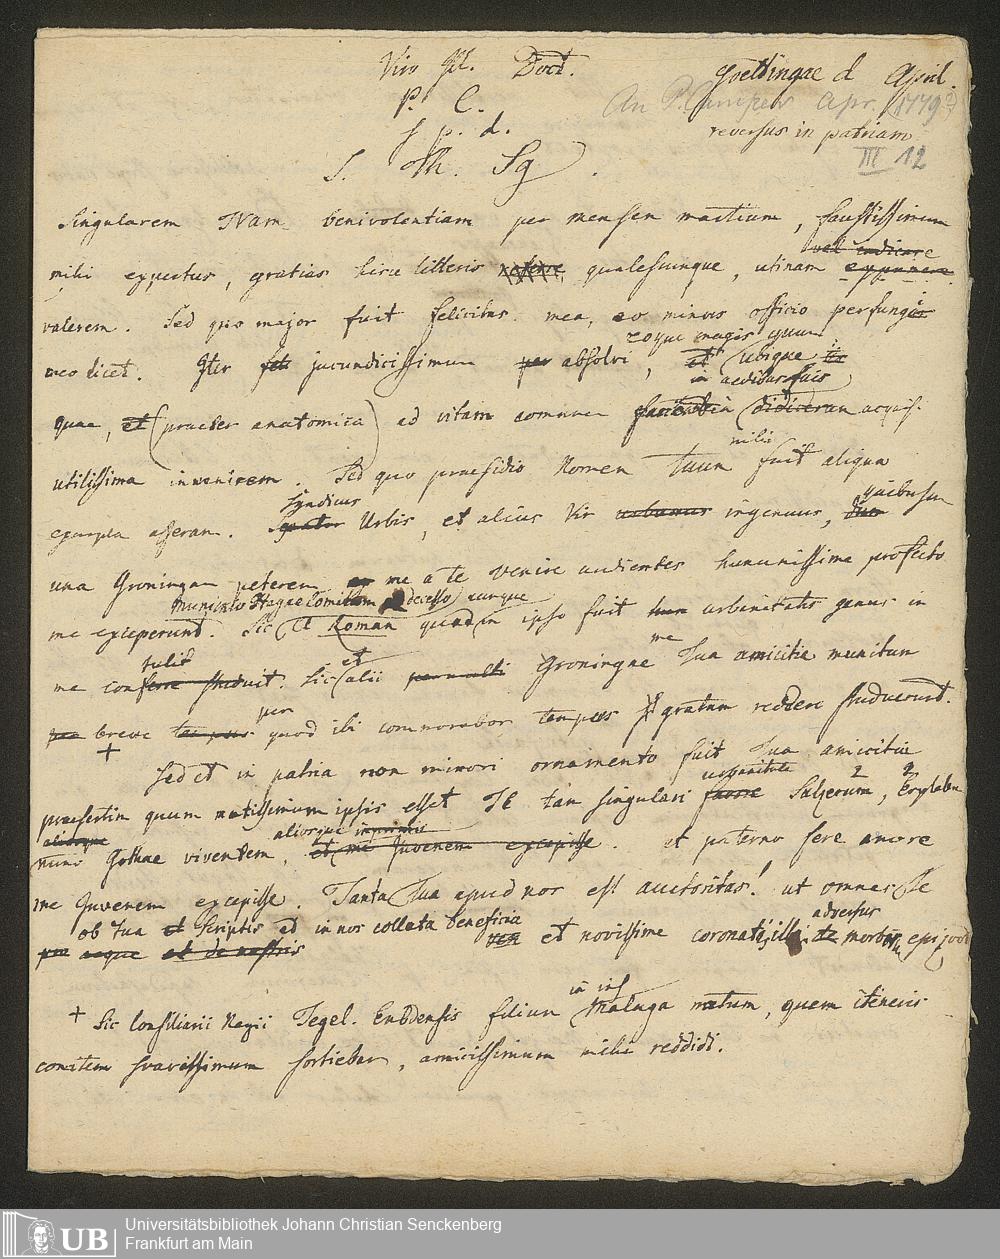 Viro Pl. Doct. Goettingae d April.
P. C. An P. Camper Apr. (1779?)
s. p. d. reversus in patriam
S. Th. Sg. III 12
Singularem Tuam benivolentiam per mensem martium, faustissimum
vel indicare
mihi expertus, gratias hisce litteris referre qualescunque, utinam exponere
valerem. Sed quo major fuit felicitas mea, eo minus officio perfungi
eoque magis quum
meo licet. Iter jucundissimum absolvi, et ubique
in aedibus suis
quae, et (praeter anatomica) ad vitam didiceram
utilissima invenirem. Sed quo praesidio Nomen Tuum mihi fuit aliqua
exempla afferam. Syndicus Urbis, et alius Vir urbanus ingenuus, quibuscum
una Groningam peterem me a te venire audientes humanissime profecto
me exceperunt. Sic Roman ipso fuit urbanitatis genus in
me contulit. Sic et alii permulti Groningae me Tua amicitia munitum
breve tempus per quod ibi commorabor tempus gratum reddere studuerunt.
+
Sed et in patria non minori ornamento fuit Tua amicitia
praesertim quum notissimum ipsis esset Te tam singulari urbanitate Sulzerum,
aliosque
nunc Gothae viventem, aliosque et me Juvenem excepisse. et paterno fere amore
me Juvenem excepisse. Tanta Tua apud nos est auctoritas! ut omnes Te
ob Tua et Scriptis ad in nos collata beneficia adversus
aeque et de nostris et novissime
+ Sic Consiliarii Regii Tegel. Embdensis filium in ins. Malaga natum, quem itineris
comitem suavissimum sortiebar, amicissimum mihi reddidi.
Universitätsbibliothek Johann Christian Senckenberg
Frankfurt am Main
UB